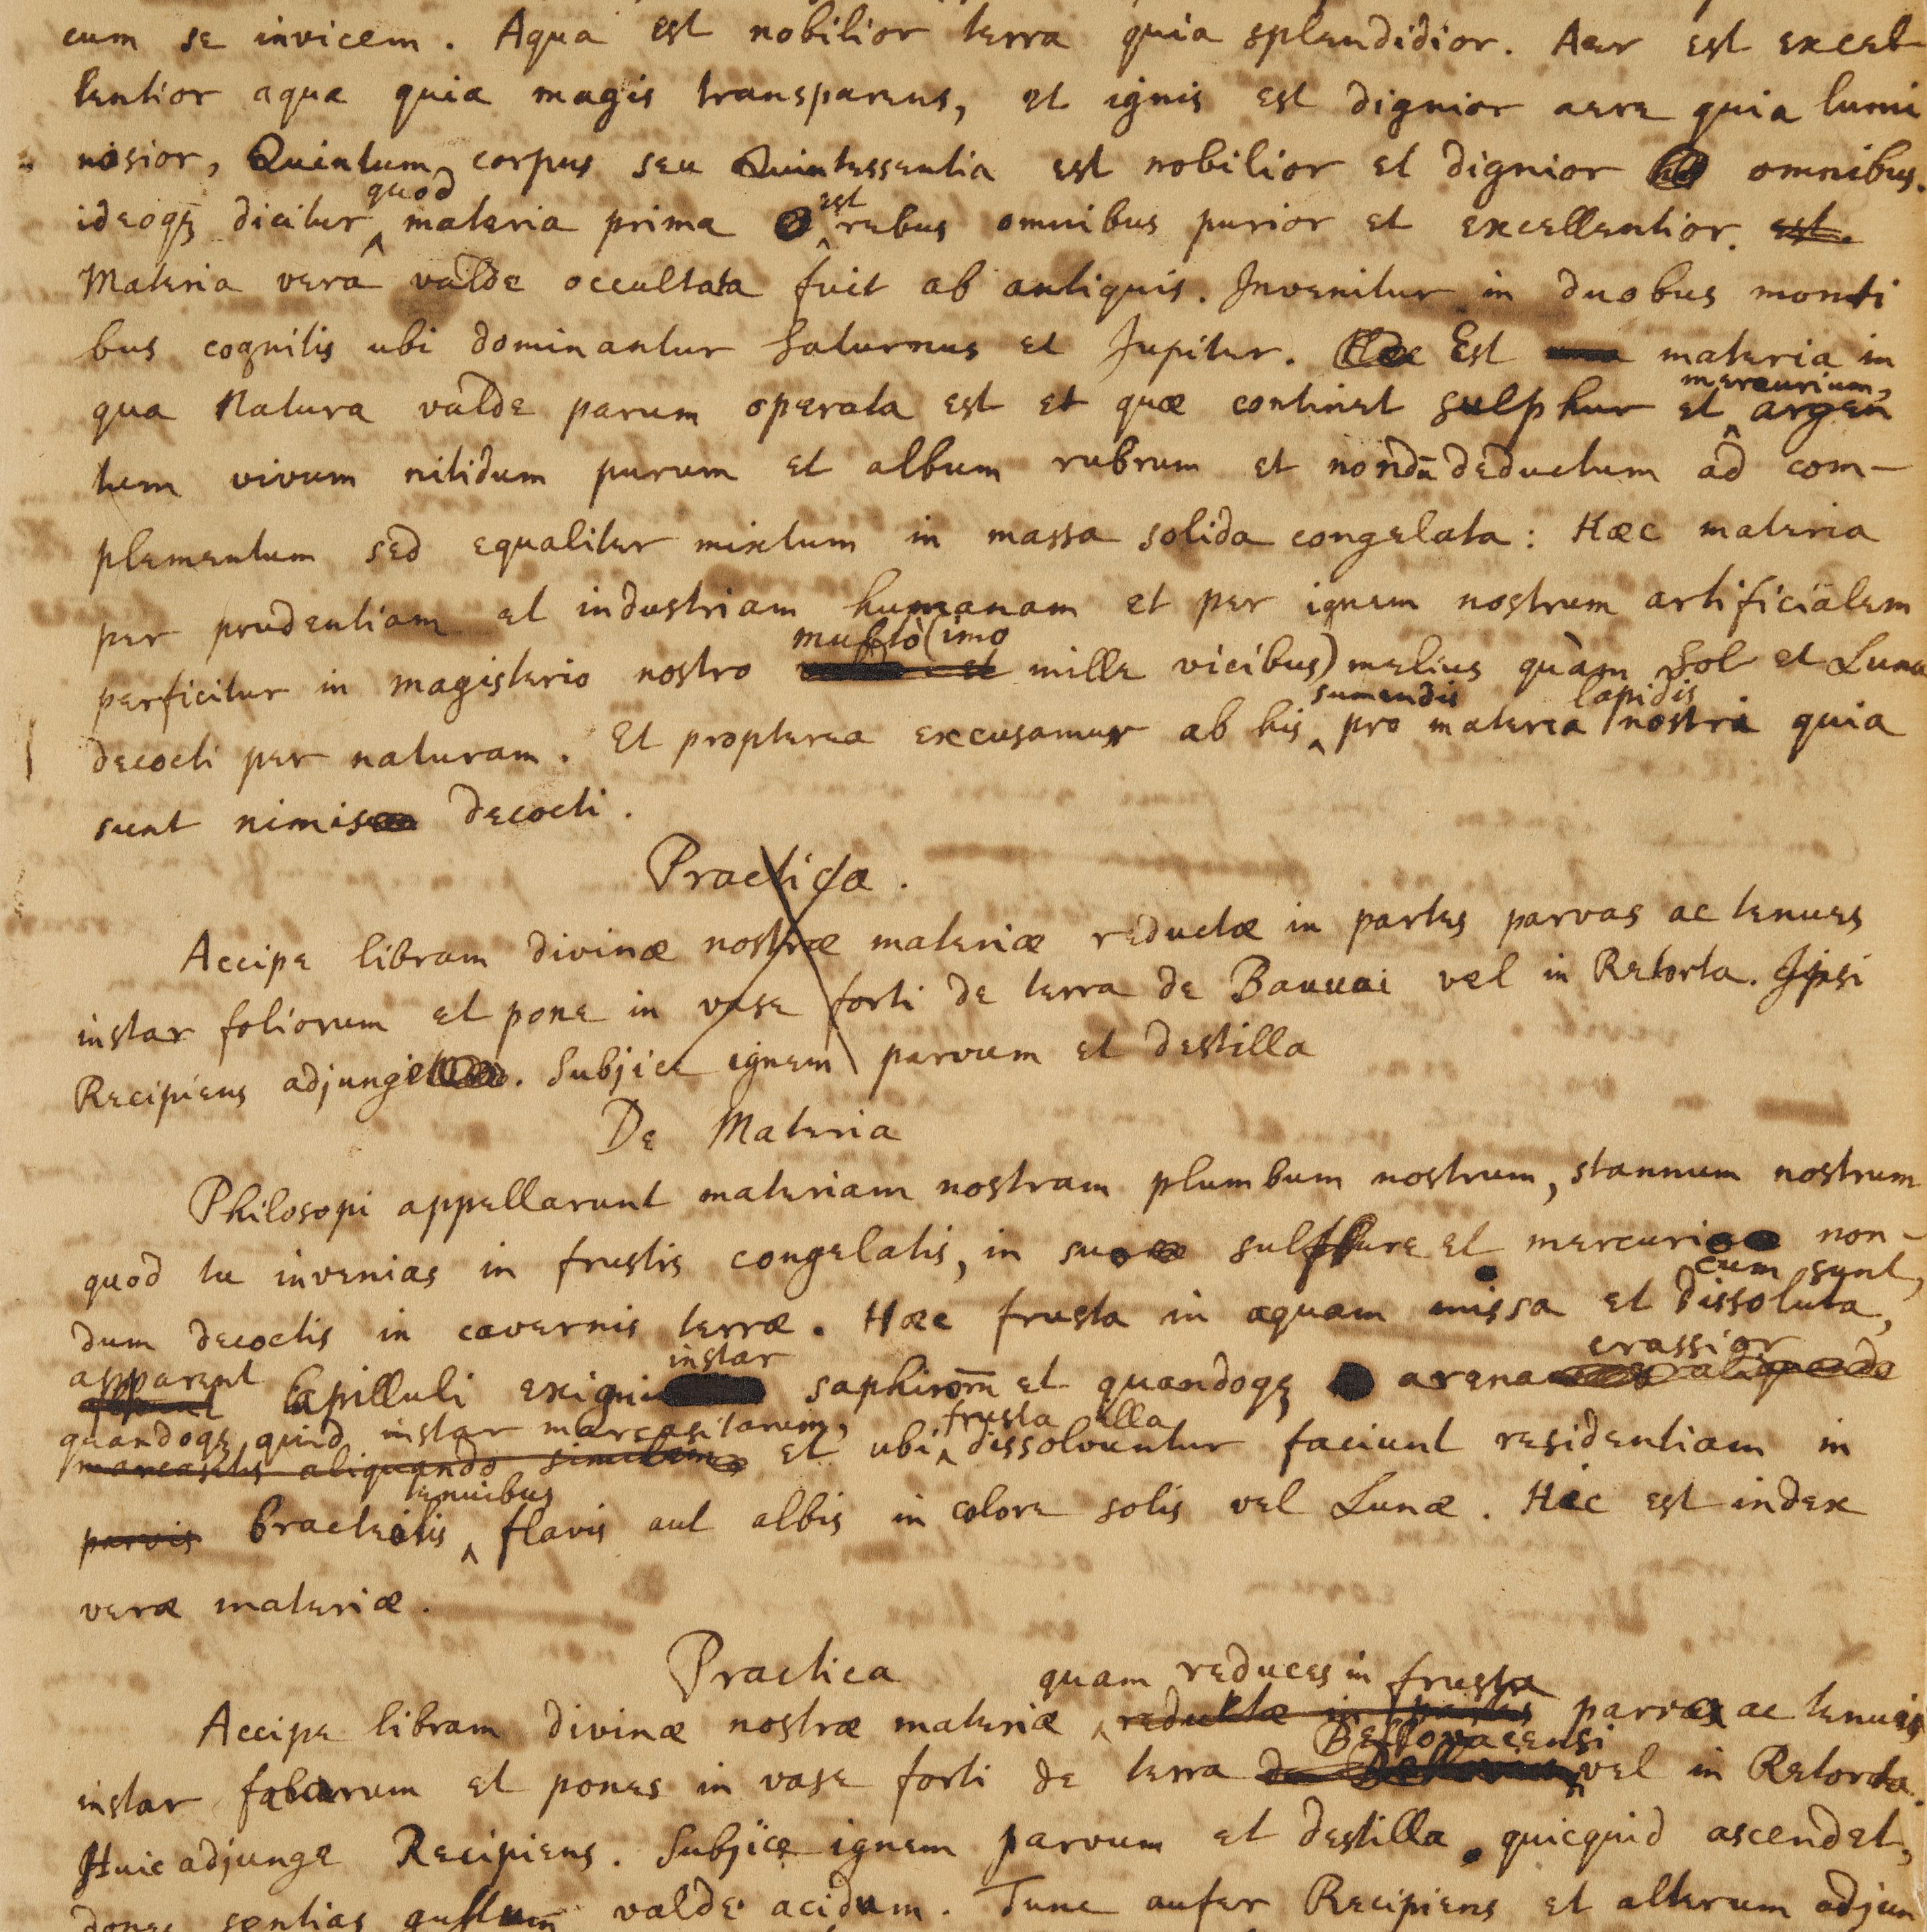 cum se invicem. Aqua est nobilior terra quia splendidior. Aer est excel
lentior aqua quia magis transparens, et ignis est dignior aere quia lumi
nosior, Quintum corpus seu Quintessentia est nobilior et dignior omnibus.
quod est
ideoqꝫ dicitur ^ materia prima ^ rebus omnibus purior et excellentior. est.
Materia verâ valde occultata fuit ab antiquis. Invenitur in duobus monti
bus cognitis ubi dominantur Saturnus et Jupiter. Est una materia in
mercurium,
qua Natura valde parum operata est et quæ continet sulphur et ^ argen
tum vivum nitidum purum et album rubrum et nondū deductum ad com-
plementum sed equaliter mixtum in massa solida congelata: Hæc materia
per prudentiam et industriam humanam et per ignem nostrum artificialem
multò (imo
perficitur in magisterio nostro et mille vicibus) melius quàm Sol et Luna
sumendis lapidis
decocti per naturam. Et propterea excusamur ab his ^ pro materia nostri quia
sunt nimis decocti.
Practica.
Accipe libram divinæ nostræ materiæ reductæ in partes parvas ac tenues
instar foliorum et pone in vase forti de terra de Bauvai vel in Retorta. Ipsi
Recipiens adjunge. Subjice ignem parvum et destilla
De Materia
Philosopi appellarunt materiam nostram plumbum nostrum, stannum nostrum
quod tu invenias in frustis congelatis, in suo sulphure et mercurio non-
cum sunt,
dum decoctis in cavernis terræ. Hæc frusta in aquam missa et dissoluta,
apparent instar crassior
lapilluli exigui saphirorū et quandoqꝫ arena aliquando
quandoqꝫ quid instar marcasitarum, frusta illa
marcasitis aliquando similem et ubi ^ dissolvuntur faciunt residentiam in
tenuibus
parvis bracteolis ^ flavis aut albis in colore solis vel Lunæ. Hic est index
veræ materiæ.
Practica quam reduces in frusta
Accipe libram divinæ nostræ materiæ ^ reductæ in partes parva ac tenuia
Bellovacensi
instar fabarum et pones in vase forti de terra vel in Retorta.
Huic adjunge Recipiens. Subjice ignem parvum et destilla quicquid ascendet,
donec sentias gustum valde acidum. Tunc aufer Recipiens et alterum adjun